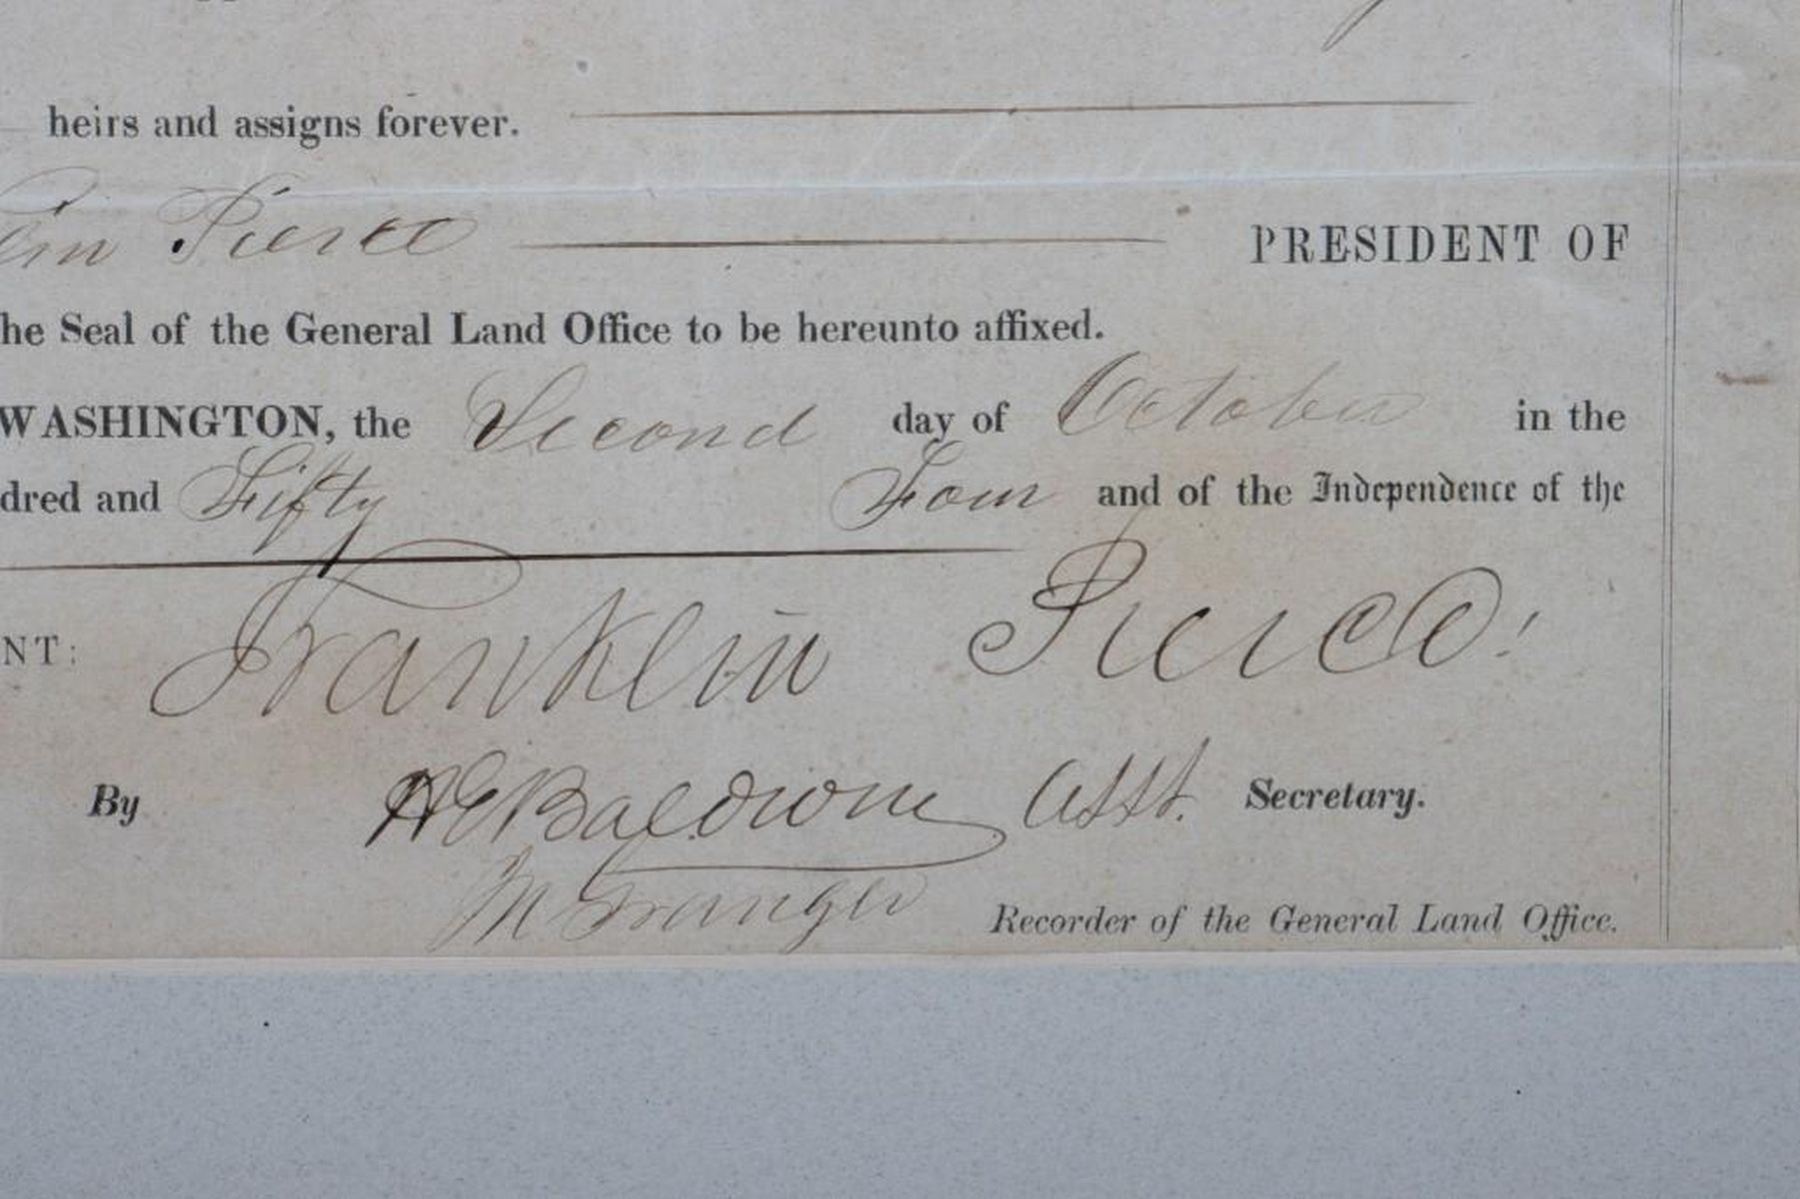 heirs and assigns forever.
Pierce PRESIDENT OF
he Seal of the General Land Office to be hereunto affixed.
WASHINGTON, the Second day of October in the
dred and Fifty Four and of the Independence of the
NT: Franklin Pierce
By H E Baldwin Asst. Secretary.
M Granger Recorder of the General Land Office.